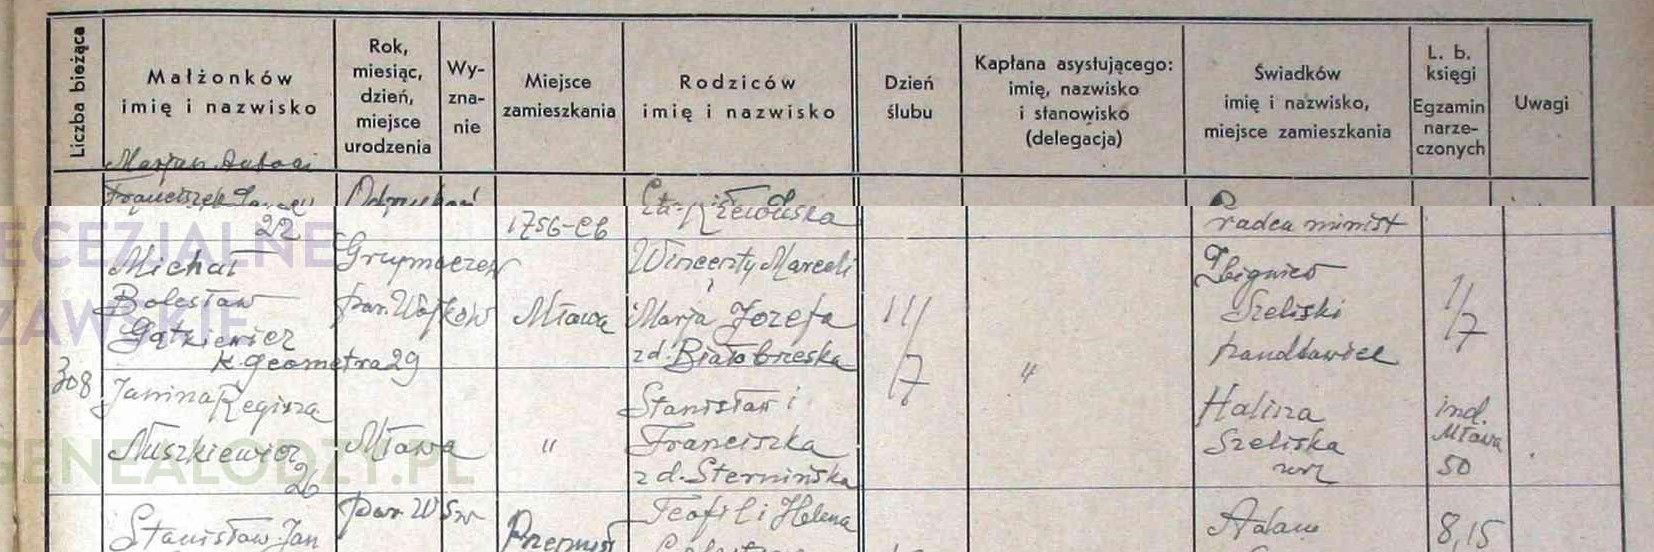 Liczba bieżąca
Małżonków
imię i nazwisko
Rok,
miesiąc,
dzień,
miejsce
urodzenia
Wy-
zna-
nie
Miejsce
zamieszkania
Rodziców
imię i nazwisko
Dzień
ślubu
Kapłana asystującego:
imię, nazwisko
i stanowisko
(delegacja)
Świadków
imię i nazwisko,
miejsce zamieszkania
L. b.
księgi
Egzamin
narze-
czonych
Uwagi
Marjan Antoni
Franciszek
22
1756-
radca minist
308
Michał
Bolesław
Gątkiewicz
k. geometra 29
par. Wojków
Mława
Wincenty Marceli
i
Marja Józefa
zd. Białobrzeska
11/
/7
"
Zbigniew
Szeliski
1/
/7
Janina Regina
Nuszkiewicz
26
Mława
"
Stanisław i
Franciszka
zd. Sternińska
Halina
Szeliska
ind.
Mława
50
Stanisław Jan
par. W
Przemyśl
Teofil i Helena
Adam
8,15
ECEZJALNE
ZAWSKIE
GENEALODZY.PL